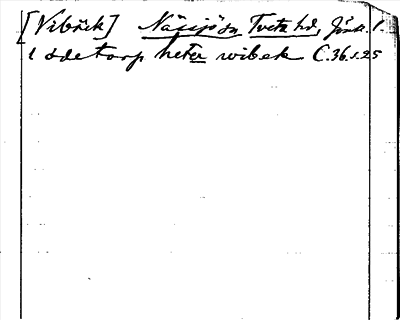 [Vibäck] Nässjö sn Tveta hd, Jönk. l.
i ödetorp heter wibek C.36.s.25